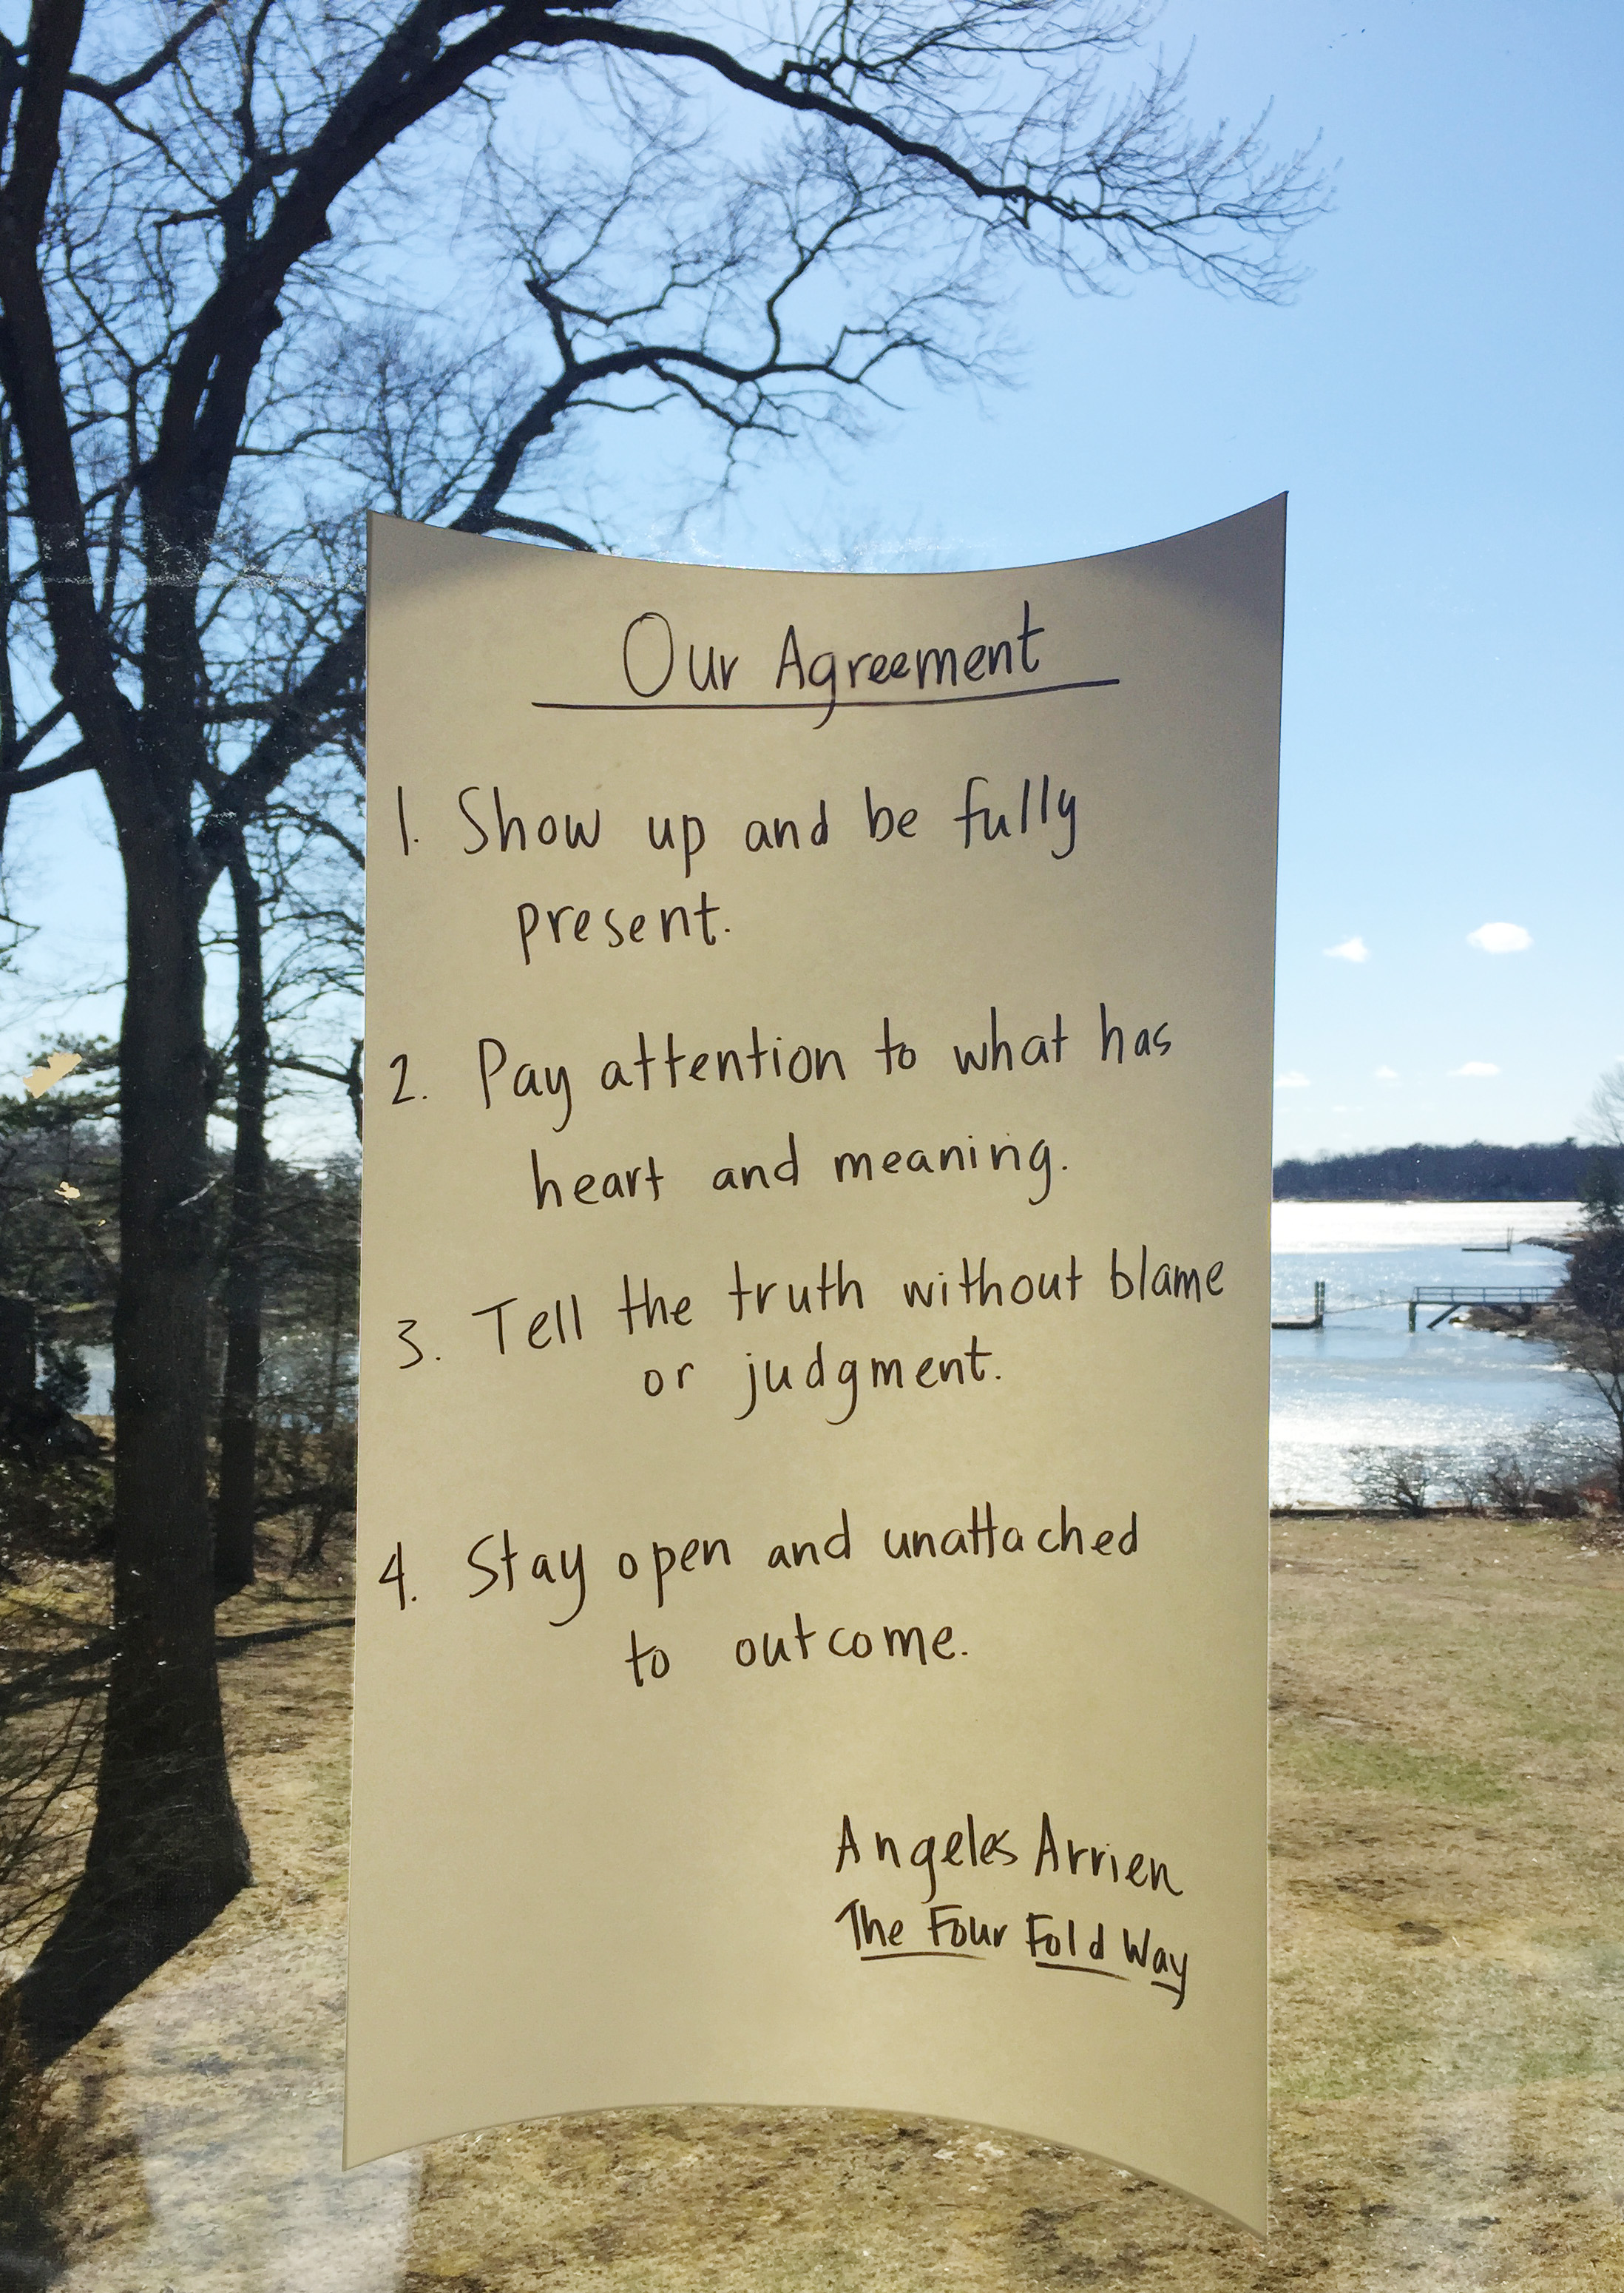 Our Agreement
1. Show up and be fully
present.
2. Pay attention to what has
heart and meaning.
3. Tell the truth without blame
or judgment.
4. Stay open and unattached
to outcome.
Angeles Arrien
The Four Fold Way